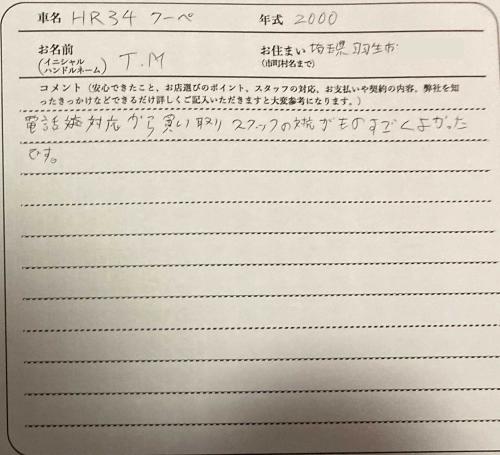 車名 HR34 クーペ 年式 2000
お名前 (イニシャル ハンドルネーム) T.M お住まい (市町村名まで) 埼玉県羽生市
コメント（安心できたこと、お店選びのポイント、スタッフの対応、お支払いや契約の内容、弊社を知
ったきっかけなどできるだけ詳しくご記入いただきますと大変参考になります。）
電話対応から買い取りスタッフの対応がものすごくよかった
です。